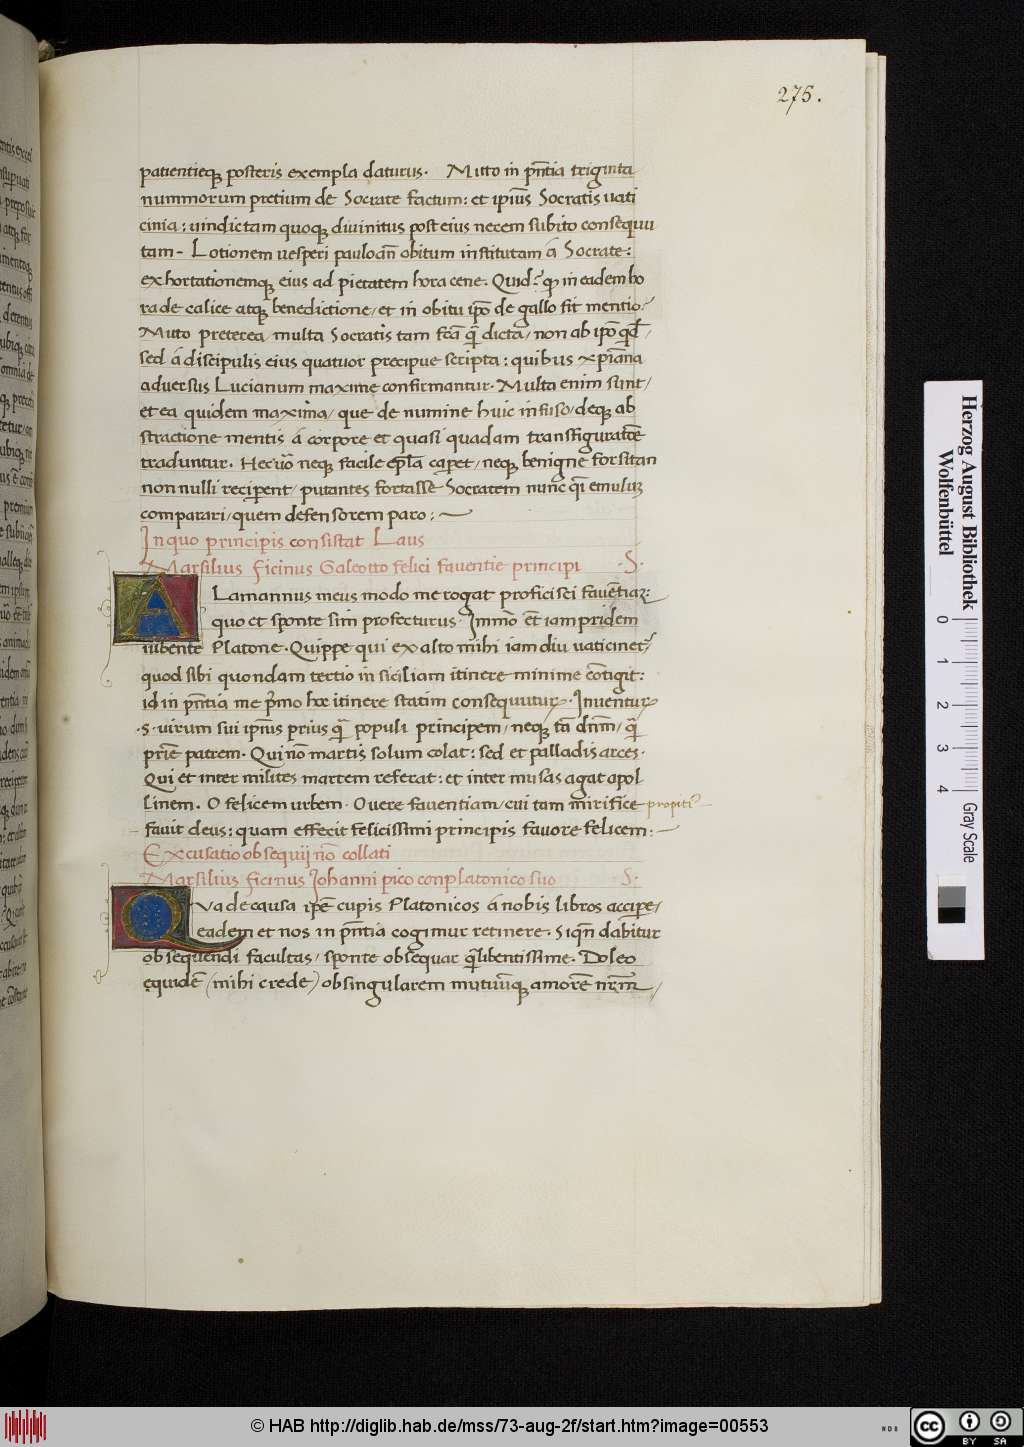 275.
patientieq; posteris exempla daturus. Mitto in pñtia triginta
nummorum pretium de Socrate factum: et ipius Socratis uati
cinia: uindictam quoq; diuinitus post eius necem subito consequu
tam - Lotionem uesperi pauloañ obitum institutam a Socrate:
exhortationemq; eius ad pietatem hora cene. Quid? qp in eadem ho
ra de calice atq; benedictione, et in obitu ipo de gallo fit mentio?
Mitto preterea, multa Socratis tam fca q̃ dicta, non ab ipo qd,
sed a discipulis eius quatuor precipue scripta: quibus xpiana
aduersus Lucianum maxime confirmantur. Multa enim sunt,
et ea quidem maxima, que de numine huic infuso, deq; ab
stractione mentis a corpore et quasi quadam transfiguratõe
traduntur. Hec uo neq; facile epla caperet, neq; benigne forsitan
non nulli reciperent, putantes fortasse Socratem nunc qi emulum
comparari, quem defensorem paro:
In quo principis consistat Laus
Marsilius ficinus Galeotto felici fauentie principi .S.
A Lamannus meus modo me rogat proficisci fauẽtiaz:
quo et sponte sim profecturus. Immo ẽt iam pridem
iubente Platone. Quippe qui ex alto mihi iam diu uaticinet?
quod sibi quondam tertio in siciliam itinere minime cõtigit:
id in pñtia me pmo hoc itinere statim consequutur. Inuentur
.s. uirum sui ipius prius q̃ populi principem, neq; tã dnm, q̃
prie patrem. Qui nõ martis solum colat: sed et palladis arces.
Qui et inter milites martem referat: et inter musas agat apol
linem. O felicem urbem. O uere fauentiam, cui tam mirifice propiti9
fauit deus: quam effecit felicissimi principis fauore felicem:
Excusatio obsequij nõ collati
Marsilius ficinus Johanni pico conplatonico suo .S.
Qua de causa ipe cupis Platonicos a nobis libros accipe,
eadem et nos in pñtia cogimur retinere. Siqñ dabitur
obsequendi facultas, sponte obsequar q̃libentissime. Doleo
equidẽ (mihi crede) ob singularem mutuũq; amorẽ nrm,
Herzog August Bibliothek
Wolfenbüttel
0 1 2 3 4
Gray Scale
© HAB http://diglib.hab.de/mss/73-aug-2f/start.htm?image=00553
WDB
cc BY SA